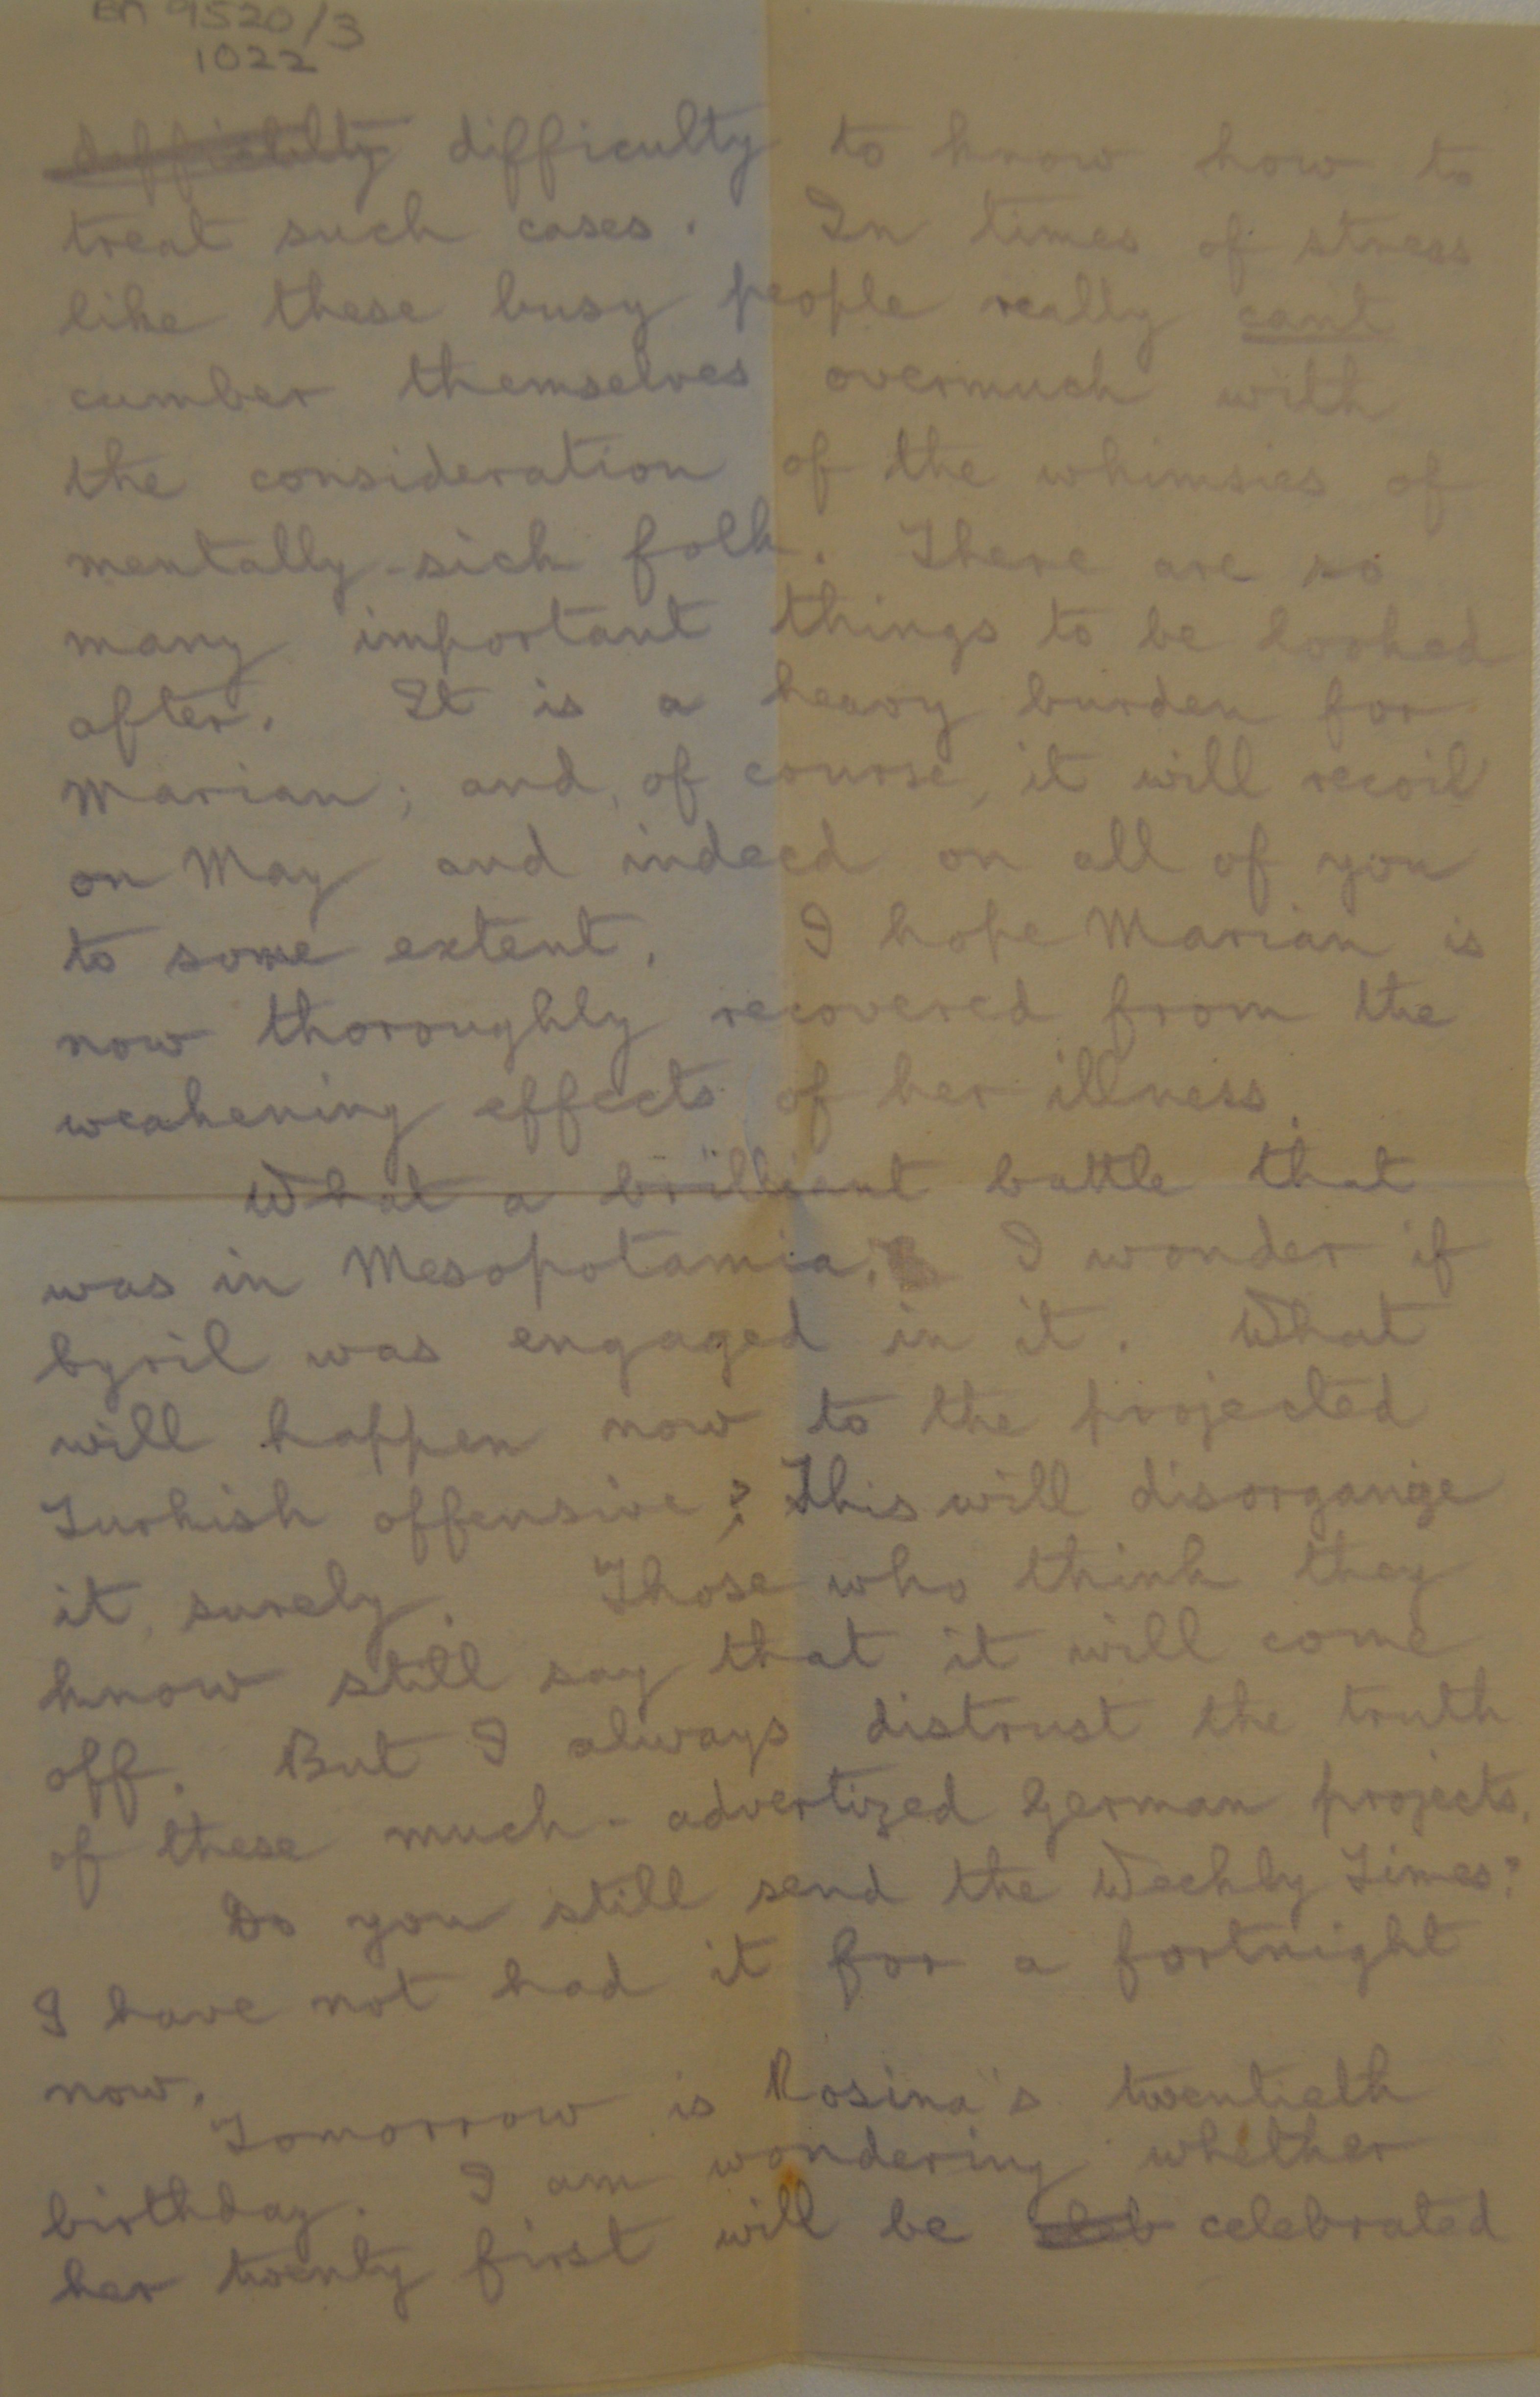 BA 9520/3
1022
difficulty to know how to
treat such cases. In times of stress
like these busy people really cant
cumber themselves overmuch with
the consideration of the whimsies of
mentally-sick folk. There are so
many important things to be looked
after. It is a heavy burden for
Marian; and, of course, it will recoil
on May and indeed on all of you
to some extent. I hope Marian is
now thoroughly recovered from the
weakening effects of her illness.
What a brilliant battle that
was in Mesopotamia. I wonder if
Cyril was engaged in it. What
will happen now to the projected
Turkish offensive? This will disorganize
it, surely. Those who think they
know still say that it will come
off. But I always distrust the truth
of these much-advertized German projects.
Do you still send the Weekly Times?
I have not had it for a fortnight
now.
Tomorrow is Rosina's twentieth
birthday. I am wondering whether
her twenty first will be celebrated